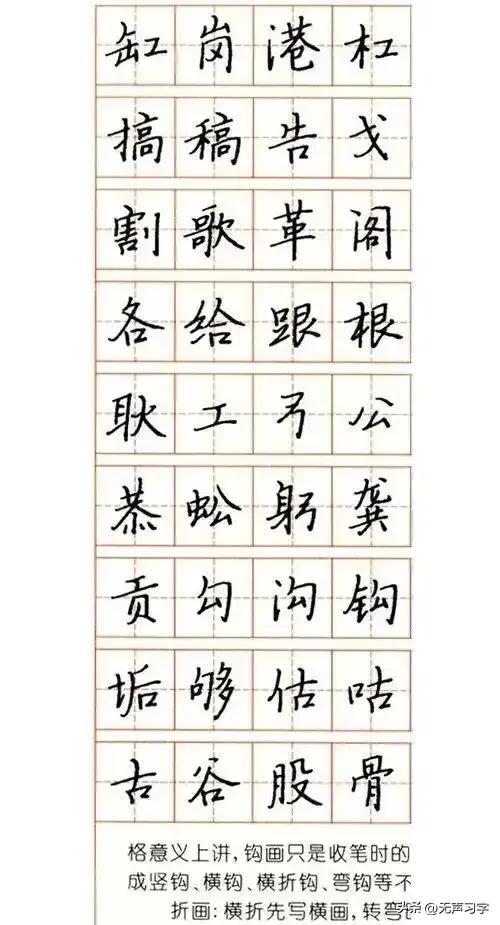 缸岗港杠
搞稿告戈
割歌革阁
各给跟根
耿工弓公
恭蚣躬龚
贡勾沟钩
垢够估咕
古谷股骨
格意义上讲,钩画只是收笔时的
成竖钩、横钩、横折钩、弯钩等不
折画:横折先写横画,转弯
头条@无声习字